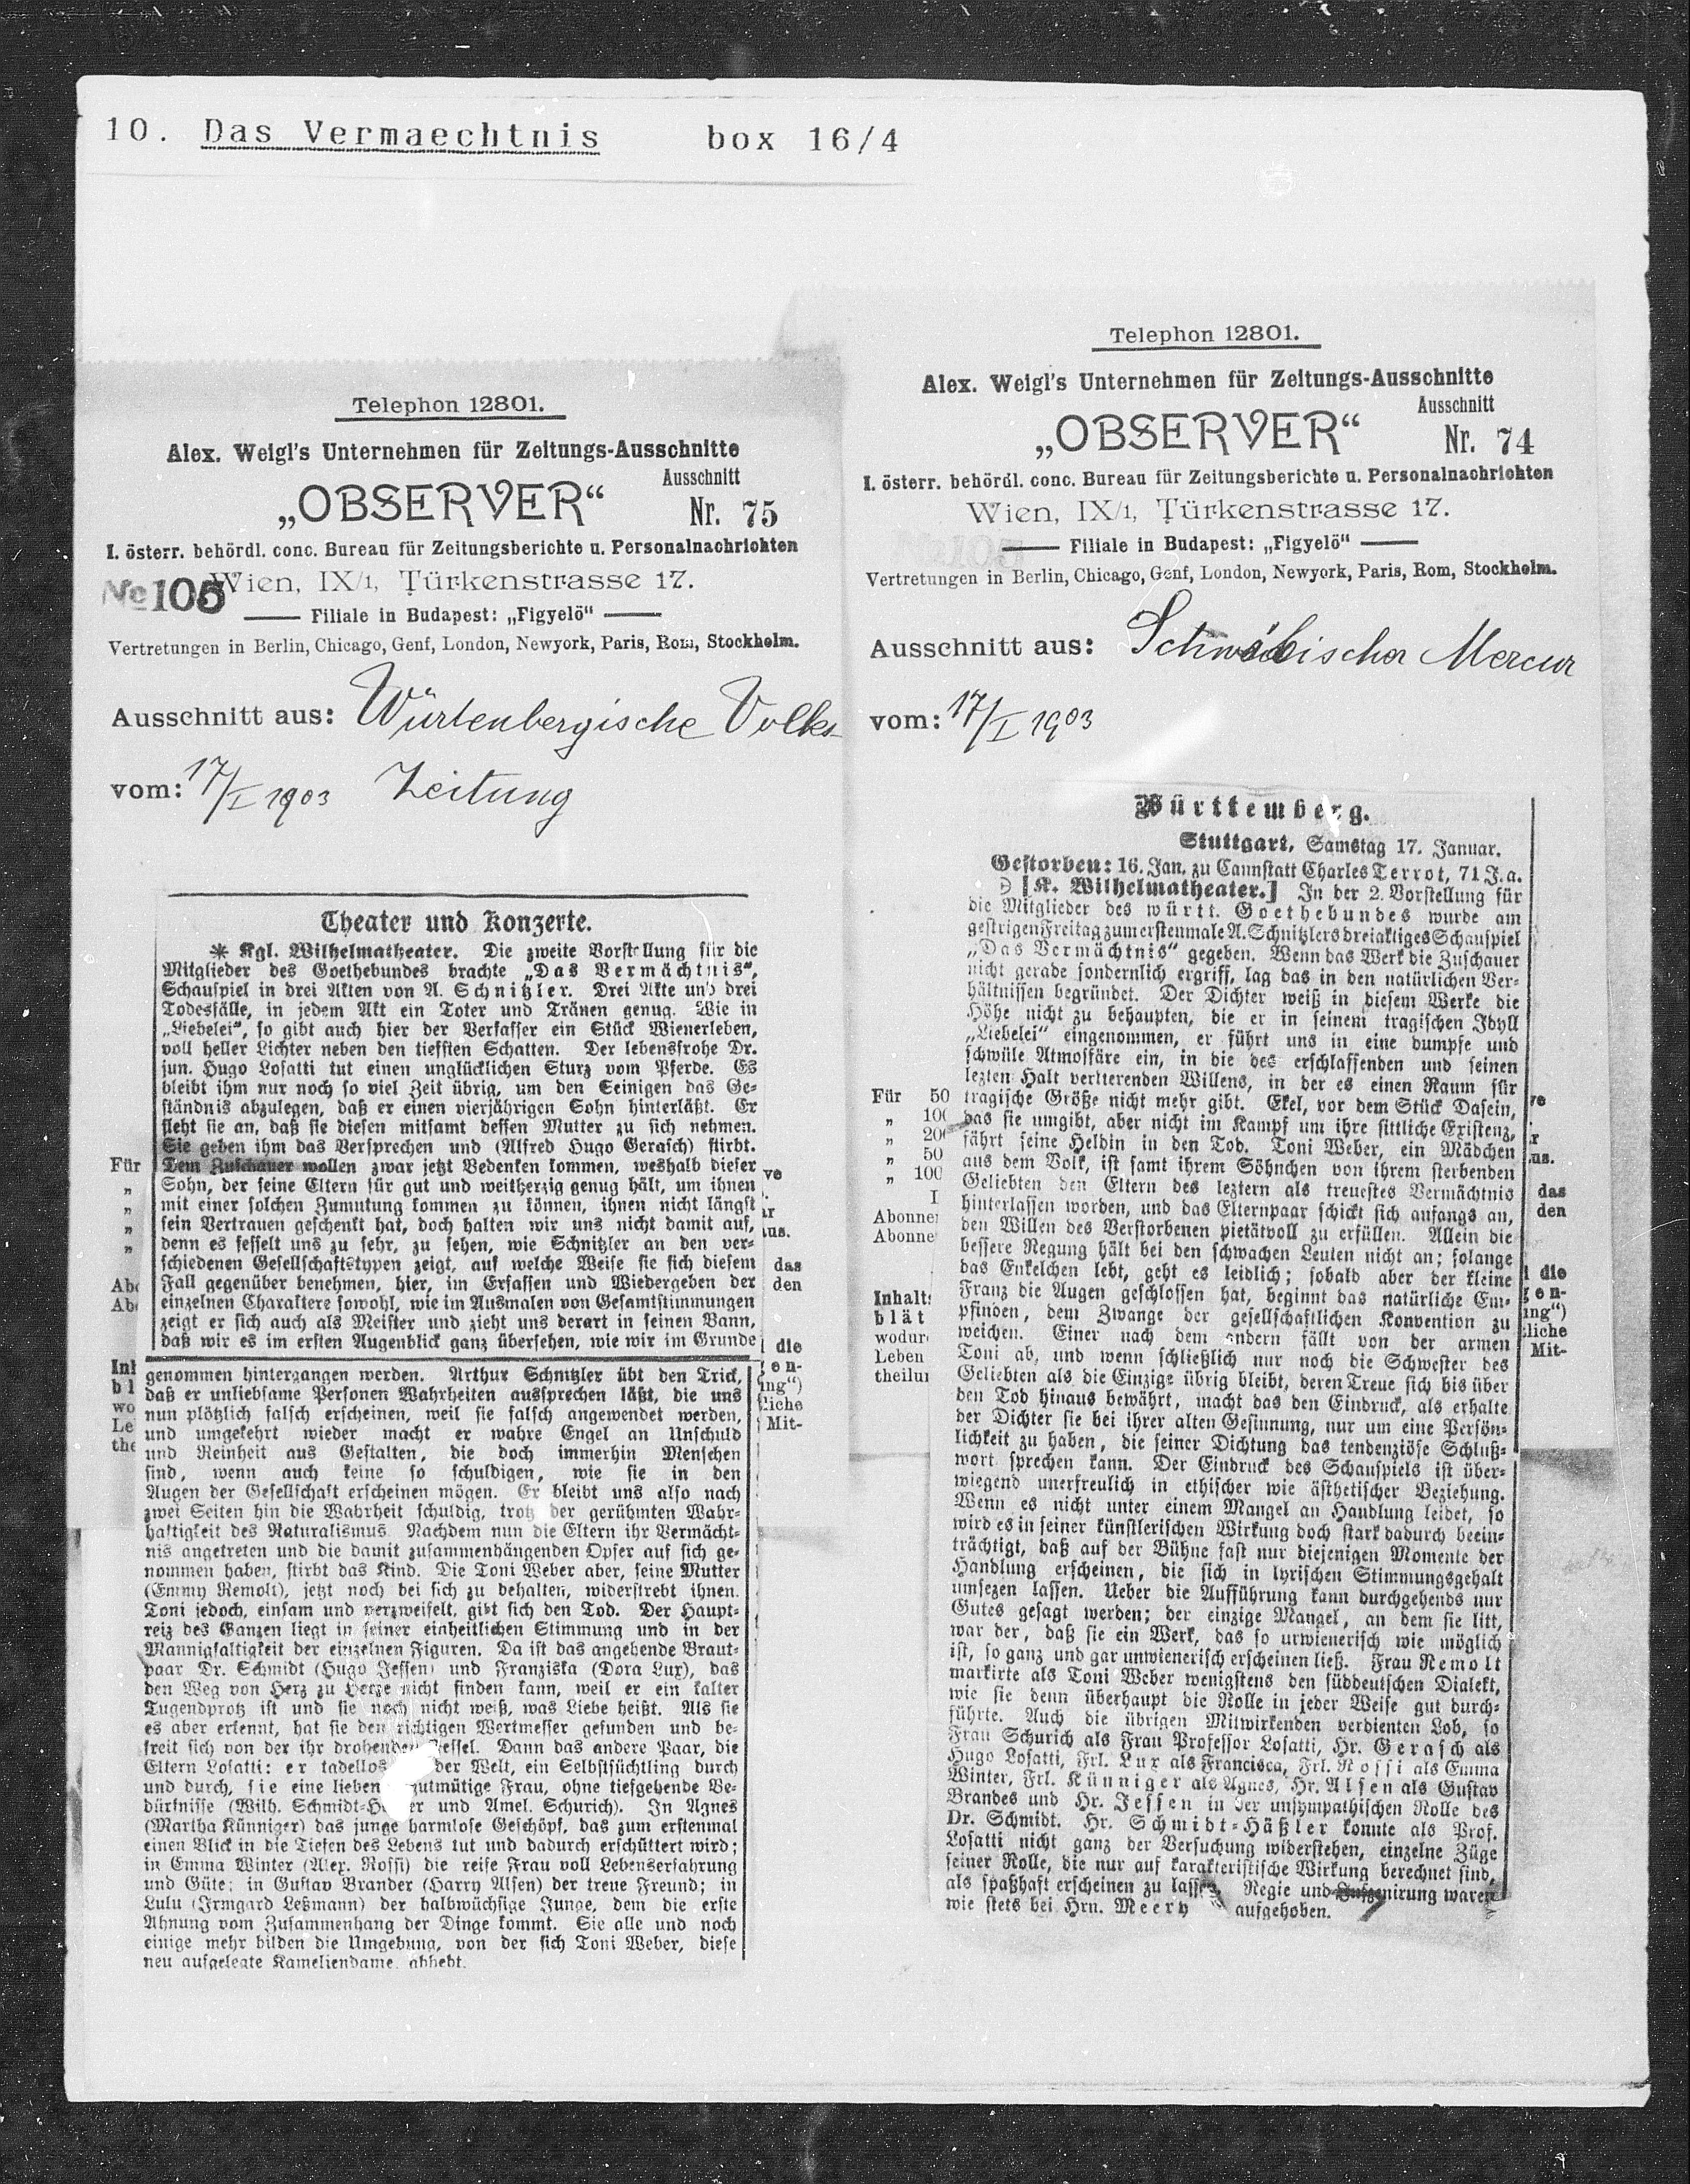 10. Das Vermaechtnis box 16/4
Telephon 12801.
Alex. Weigl's Unternehmen für Zeitungs-Ausschnitte
Ausschnitt
„OBSERVER“ Nr. 75
I. österr. behördl. conc. Bureau für Zeitungsberichte u. Personalnachrichten
No 105
Wien, IX/1, Türkenstrasse 17.
Filiale in Budapest: „Figyelö“
Vertretungen in Berlin, Chicago, Genf, London, Newyork, Paris, Rom, Stockholm.
Ausschnitt aus: Würtenbergische Volks-
vom: 17/I 1903 Zeitung
Theater und Konzerte.
* Kgl. Wilhelmatheater. Die zweite Vorstellung für die
Mitglieder des Goethebundes brachte „Das Vermächtnis“,
Schauspiel in drei Akten von A. Schnitzler. Drei Akte und drei
Todesfälle, in jedem Akt ein Toter und Tränen genug. Wie in
„Liebelei“, so gibt auch hier der Verfasser ein Stück Wienerleben,
voll heller Lichter neben den tiefsten Schatten. Der lebensfrohe Dr.
jun. Hugo Losatti tut einen unglücklichen Sturz vom Pferde. Es
bleibt ihm nur noch so viel Zeit übrig, um den Seinigen das Ge-
ständnis abzulegen, daß er einen vierjährigen Sohn hinterläßt. Er
fleht sie an, daß sie diesen mitsamt dessen Mutter zu sich nehmen.
Sie geben ihm das Versprechen und (Alfred Hugo Gerasch) stirbt.
Dem Zuschauer wollen zwar jetzt Bedenken kommen, weshalb dieser
Sohn, der seine Eltern für gut und weitherzig genug hält, um ihnen
mit einer solchen Zumutung kommen zu können, ihnen nicht längst
sein Vertrauen geschenkt hat, doch halten wir uns nicht damit auf,
denn es fesselt uns zu sehr, zu sehen, wie Schnitzler an den ver-
schiedenen Gesellschaftstypen zeigt, auf welche Weise sie sich diesem
Fall gegenüber benehmen, hier, im Erfassen und Wiedergeben der
einzelnen Charaktere sowohl, wie im Ausmalen von Gesamtstimmungen
zeigt er sich auch als Meister und zieht uns derart in seinen Bann,
daß wir es im ersten Augenblick ganz übersehen, wie wir im Grunde
genommen hintergangen werden. Arthur Schnitzler übt den Trick,
daß er unliebsame Personen Wahrheiten aussprechen läßt, die uns
nun plötzlich falsch erscheinen, weil sie falsch angewendet werden,
und umgekehrt wieder macht er wahre Engel an Unschuld
und Reinheit aus Gestalten, die doch immerhin Menschen
sind, wenn auch keine so schuldigen, wie sie in den
Augen der Gesellschaft erscheinen mögen. Er bleibt uns also nach
zwei Seiten hin die Wahrheit schuldig, trotz der gerühmten Wahr-
haftigkeit des Naturalismus. Nachdem nun die Eltern ihr Vermächt-
nis angetreten und die damit zusammenhängenden Opfer auf sich ge-
nommen haben, stirbt das Kind. Die Toni Weber aber, seine Mutter
(Emmy Remolt), jetzt noch bei sich zu behalten, widerstrebt ihnen.
Toni jedoch, einsam und verzweifelt, gibt sich den Tod. Der Haupt-
reiz des Ganzen liegt in seiner einheitlichen Stimmung und in der
Mannigfaltigkeit der einzelnen Figuren. Da ist das angehende Braut-
paar Dr. Schmidt (Hugo Jessen) und Franziska (Dora Lux), das
den Weg von Herz zu Herze nicht finden kann, weil er ein kalter
Tugendprotz ist und sie noch nicht weiß, was Liebe heißt. Als sie
es aber erkennt, hat sie den richtigen Wertmesser gefunden und be-
freit sich von der ihr drohenden Fessel. Dann das andere Paar, die
Eltern Losatti: er tadellos der Welt, ein Selbstsüchtling durch
und durch, sie eine lieben gutmütige Frau, ohne tiefgehende Be-
dürfnisse (Wilh. Schmidt- und Amel. Schurich). In Agnes
(Martha Künniger) das junge harmlose Geschöpf, das zum erstenmal
einen Blick in die Tiefen des Lebens tut und dadurch erschüttert wird;
in Emma Winter (Alex. Rossi) die reife Frau voll Lebenserfahrung
und Güte; in Gustav Brander (Harry Alsen) der treue Freund; in
Lulu (Irmgard Leßmann) der halbwüchsige Junge, dem die erste
Ahnung vom Zusammenhang der Dinge kommt. Sie alle und noch
einige mehr bilden die Umgebung, von der sich Toni Weber, diese
neu aufgelegte Kameliendame, abhebt.
Telephon 12801.
Alex. Weigl's Unternehmen für Zeitungs-Ausschnitte
Ausschnitt
„OBSERVER“ Nr. 74
I. österr. behördl. conc. Bureau für Zeitungsberichte u. Personalnachrichten
Wien, IX/1, Türkenstrasse 17.
Filiale in Budapest: „Figyelö“
Vertretungen in Berlin, Chicago, Genf, London, Newyork, Paris, Rom, Stockholm.
Ausschnitt aus: Schwäbischer Mercur
vom: 17/I 1903
Württemberg.
Stuttgart, Samstag 17. Januar.
Gestorben: 16. Jan. zu Cannstatt Charles Terrot, 71 J. a.
[K. Wilhelmatheater.] In der 2. Vorstellung für
die Mitglieder des württ. Goethebundes wurde am
gestrigen Freitag zum erstenmale A. Schnitzlers dreiaktiges Schauspiel
„Das Vermächtnis“ gegeben. Wenn das Werk die Zuschauer
nicht gerade sonderlich ergriff, lag das in den natürlichen Ver-
hältnissen begründet. Der Dichter weiß in diesem Werke die
Höhe nicht zu behaupten, die er in seinem tragischen Idyll
„Liebelei“ eingenommen, er führt uns in eine dumpfe und
schwüle Atmosfäre ein, in die des erschlaffenden und seinen
lezten Halt verlierenden Willens, in der es einen Raum für
tragische Größe nicht mehr gibt. Ekel, vor dem Stück Dasein,
das sie umgibt, aber nicht im Kampf um ihre sittliche Existenz,
fährt seine Heldin in den Tod. Toni Weber, ein Mädchen
aus dem Volk, ist samt ihrem Söhnchen von ihrem sterbenden
Geliebten den Eltern des leztern als treuestes Vermächtnis
hinterlassen worden, und das Elternpaar schickt sich anfangs an,
den Willen des Verstorbenen pietätvoll zu erfüllen. Allein die
bessere Regung hält bei den schwachen Leuten nicht an; solange
das Enkelchen lebt, geht es leidlich; sobald aber der kleine
Franz die Augen geschlossen hat, beginnt das natürliche Em-
pfinden, dem Zwange der gesellschaftlichen Konvention zu
weichen. Einer nach dem andern fällt von der armen
Toni ab, und wenn schließlich nur noch die Schwester des
Geliebten als die Einzige übrig bleibt, deren Treue sich bis über
den Tod hinaus bewährt, macht das den Eindruck, als erhalte
der Dichter sie bei ihrer alten Gesinnung, nur um eine Persön-
lichkeit zu haben, die seiner Dichtung das tendenziöse Schluß-
wort sprechen kann. Der Eindruck des Schauspiels ist über-
wiegend unerfreulich in ethischer wie ästhetischer Beziehung.
Wenn es nicht unter einem Mangel an Handlung leidet, so
wird es in seiner künstlerischen Wirkung doch stark dadurch beein-
trächtigt, daß auf der Bühne fast nur diejenigen Momente der
Handlung erscheinen, die sich in lyrischen Stimmungsgehalt
umsezen lassen. Ueber die Aufführung kann durchgehends nur
Gutes gesagt werden; der einzige Mangel, an dem sie litt,
war der, daß sie ein Werk, das so urwienerisch wie möglich
ist, so ganz und gar unwienerisch erscheinen ließ. Frau Remolt
markirte als Toni Weber wenigstens den süddeutschen Dialekt,
wie sie denn überhaupt die Rolle in jeder Weise gut durch-
führte. Auch die übrigen Mitwirkenden verdienten Lob, so
Frau Schurich als Frau Professor Losatti, Hr. Gerasch als
Hugo Losatti, Frl. Lux als Francisca, Frl. Rossi als Emma
Winter, Frl. Künniger als Agnes, Hr. Alsen als Gustav
Brandes und Hr. Jessen in der unsympathischen Rolle des
Dr. Schmidt. Hr. Schmidt-Häßler konnte als Prof.
Losatti nicht ganz der Versuchung widerstehen, einzelne Züge
seiner Rolle, die nur auf karakteristische Wirkung berechnet sind,
als spaßhaft erscheinen zu lassen. Regie und Inszenirung waren
wie stets bei Hrn. Meery aufgehoben.